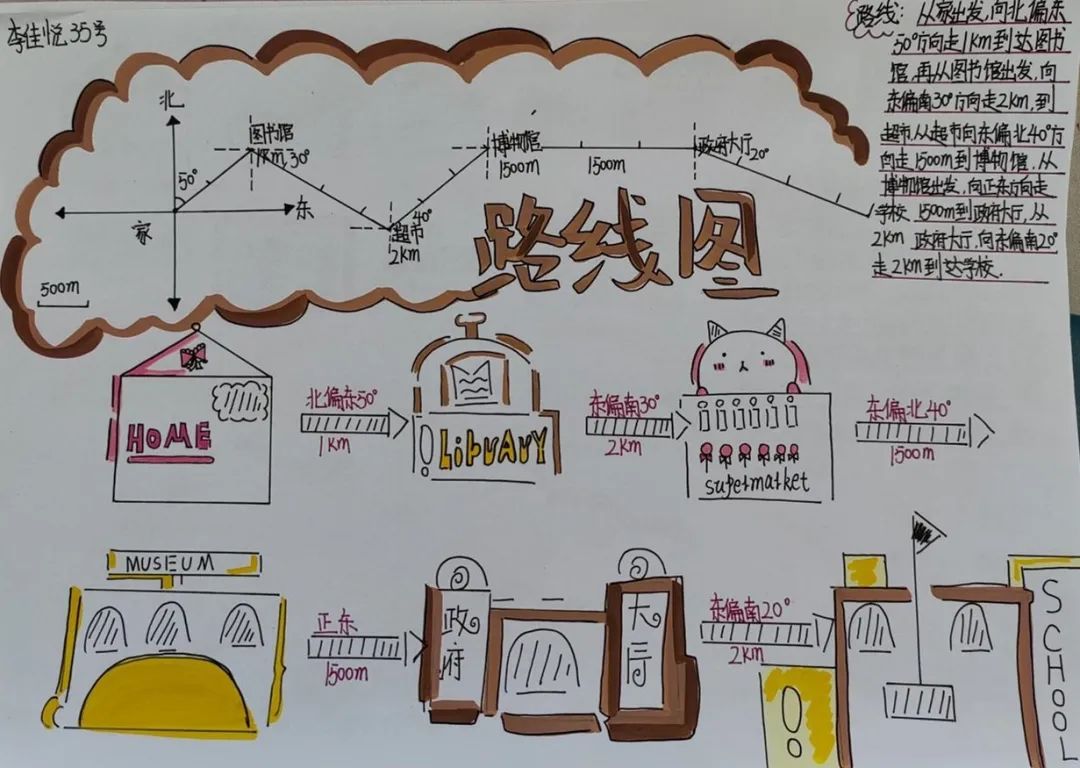 李佳悦35号
路线：从家出发，向北偏东
50°方向走1km到达图书
馆，再从图书馆出发，向
东偏南30°方向走2km，到
超市从超市向东偏北40°方
向走1500m到博物馆．从
博物馆出发，向正东方向走
1500m到政府大厅，从
政府大厅，向东偏南20°
走2km到达学校．
北
50°
东
家
500m
图书馆
1km，30°
40°
超市
2km
博物馆
1500m
1500m
政府大厅
20°
学校
2km
路线图
HOME
北偏东50°
1km
LibrARY
东偏南30°
2km
supermarket
东偏北40°
1500m
MUSEUM
正东
1500m
政府
大厅
东偏南20°
2km
SCHOOL